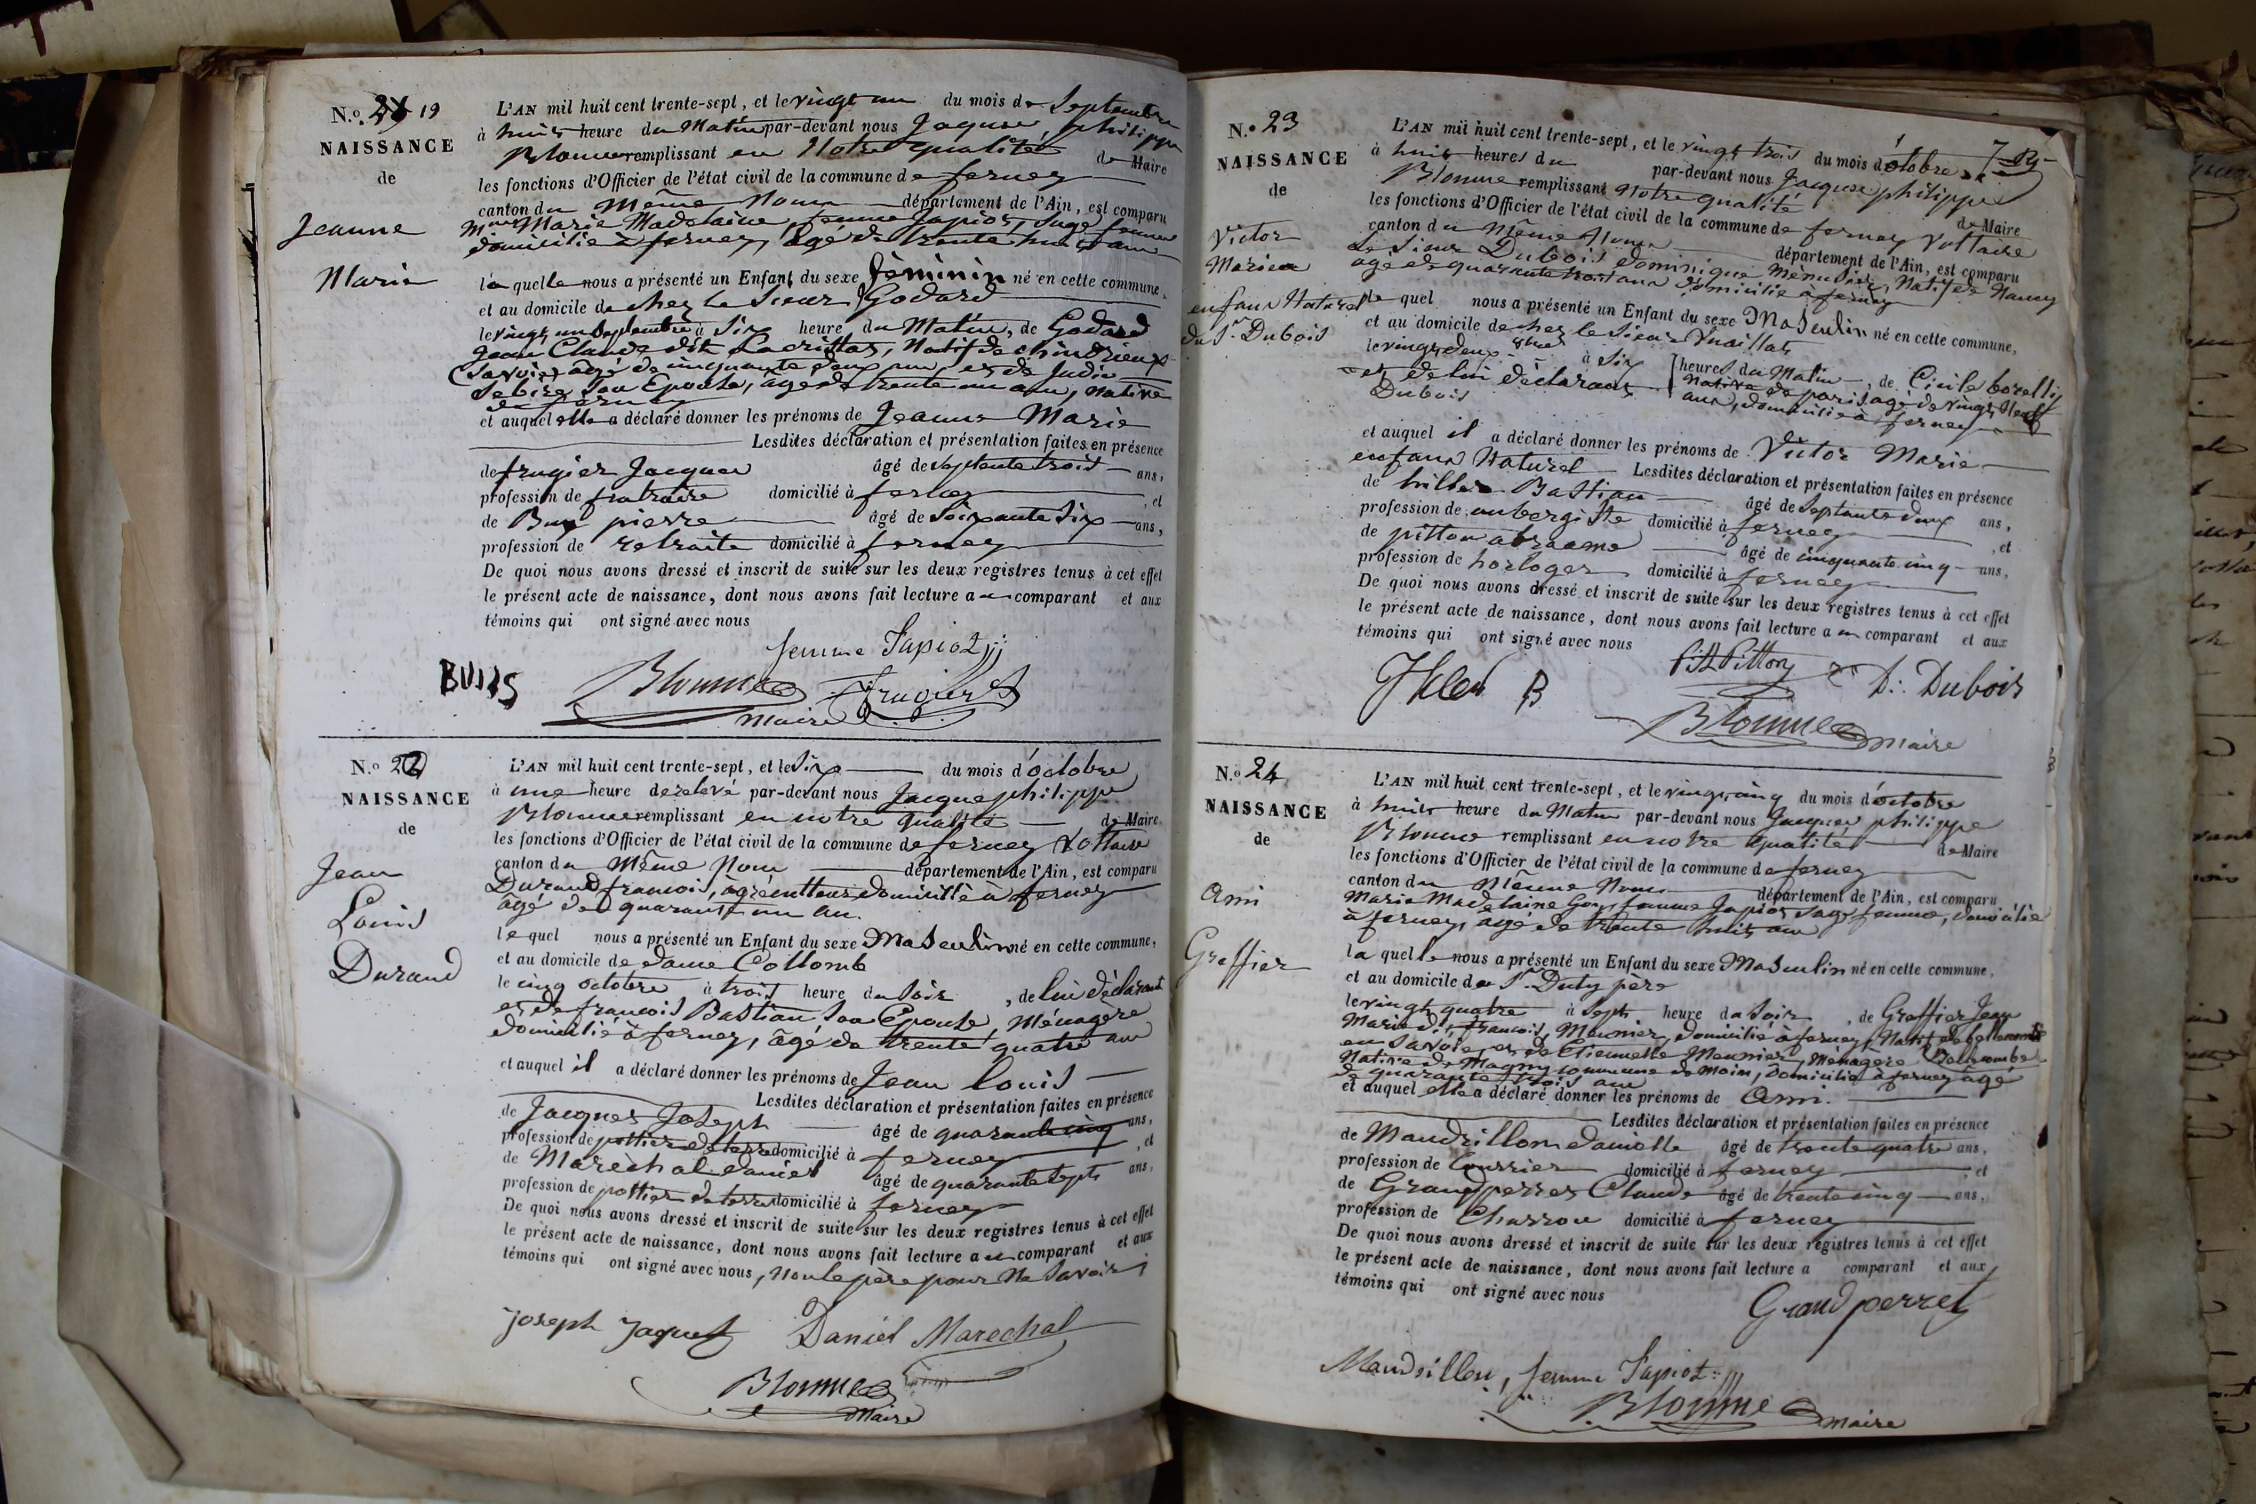 N.o 21 19
NAISSANCE
de
Jeanne
Marie
L'AN mil huit cent trente-sept, et le vingt un du mois de Septembre
à huit heure du Matin par-devant nous Jacques philippe
Blonme remplissant en Notre qualité de Maire
les fonctions d'Officier de l'état civil de la commune de ferney
canton du Même Nom département de l'Ain, est comparu
Marie Madelaine femme Tapiot, Sage femme
domicilié à ferney, âgé de trente huit ans
la quelle nous a présenté un Enfant du sexe féminin né en cette commune,
et au domicile de chez le Sieur Godard
le vingt un Septembre à Six heure du Matin, de Godard
Jean Claude dit Natif de chindrieux
(Savoie) âgé de cinquante deux ans, et de Judie
Sebire Son Epouse, âgé de trente un ans, native
de ferney
et auquel elle a déclaré donner les prénoms de Jeanne Marie
Lesdites déclaration et présentation faites en présence
de frugier Jacques âgé de Septante trois ans,
profession de domicilié à ferney, et
de Buis pierre âgé de Soixante Six ans,
profession de retraite domicilié à ferney
De quoi nous avons dressé et inscrit de suite sur les deux registres tenus à cet effet
le présent acte de naissance, dont nous avons fait lecture au comparant et aux
témoins qui ont signé avec nous
femme Tapiot
BUIS Blonme Frugier
maire
N.o 22
NAISSANCE
de
Jean
Louis
Durand
L'AN mil huit cent trente-sept, et le Six du mois d'octobre
à une heure de relevé par-devant nous Jacque philippe
Blonme remplissant en notre qualité de Maire
les fonctions d'Officier de l'état civil de la commune de ferney Voltaire
canton du Même Nom département de l'Ain, est comparu
Durand francois, domicilié à ferney
âgé de quarante un an.
le quel nous a présenté un Enfant du sexe Masculin né en cette commune,
et au domicile de dame Collomb
le cinq octobre à trois heure du Soir, de lui déclarant
et de francois Bastian Son Epouse, Ménagère
domicilié à ferney, âgé de trente quatre ans
et auquel il a déclaré donner les prénoms de Jean Louis
Lesdites déclaration et présentation faites en présence
de Jacques Joseph âgé de quarante cinq ans,
profession de pottier de terre domicilié à ferney, et
de Maréchal daniel âgé de quarante sept ans,
profession de pottier de terre domicilié à ferney
De quoi nous avons dressé et inscrit de suite sur les deux registres tenus à cet effet
le présent acte de naissance, dont nous avons fait lecture au comparant et aux
témoins qui ont signé avec nous, Non le père pour Ne Savoir
Joseph Jaquet Daniel Marechal
Blonme
maire
N.o 23
NAISSANCE
de
Victor
Marie
enfant Naturel
du Sr. Dubois
L'AN mil huit cent trente-sept, et le vingt trois du mois d'octobre
à huit heures du par-devant nous Jacques philippe
Blonme remplissant Notre qualité de Maire
les fonctions d'Officier de l'état civil de la commune de ferney Voltaire
canton du Même Nom département de l'Ain, est comparu
Le Sieur Dubois dominique Ménusier, Natif de Nancy
âgé de quarante trois ans domicilié à ferney
le quel nous a présenté un Enfant du sexe Masculin né en cette commune,
et au domicile de chez le Sieur Vuaillat
le vingt deux 8bre à Six heures du Matin, de Cicile borelly
et de lui déclarant Native de paris âgé de vingt Neuf
Dubois ans, domicilié à ferney
et auquel il a déclaré donner les prénoms de Victor Marie
enfant Naturel Lesdites déclaration et présentation faites en présence
de Bastian âgé de Septante deux ans,
profession de aubergiste domicilié à ferney, et
de pitton abraame âgé de cinquante cinq ans,
profession de horloger domicilié à ferney
De quoi nous avons dressé et inscrit de suite sur les deux registres tenus à cet effet
le présent acte de naissance, dont nous avons fait lecture au comparant et aux
témoins qui ont signé avec nous
Pitton D. Dubois
B
Blonme maire
N.o 24
NAISSANCE
de
Ami
Greffier
L'AN mil huit cent trente-sept, et le vingt cinq du mois d'octobre
à huit heure du Matin par-devant nous Jacques philippe
Blonme remplissant en notre qualité de Maire
les fonctions d'Officier de l'état civil de la commune de ferney
canton du Même Nom département de l'Ain, est comparu
Marie Madelaine Goy femme Tapiot Sage femme, domicilié
à ferney, âgé de trente huit ans
la quelle nous a présenté un Enfant du sexe Masculin né en cette commune,
et au domicile de Sr. Duty père
le vingt quatre à Sept heure du Soir, de Greffier Jean
Marie dit francois, Meunier, domicilié à ferney, Natif de bellecombe
en Savoie, et de Etiennette Meunier, Ménagere Bellecombe
Native de Magny commune de Moin, domicilié à ferney âgé
de quarante trois ans
et auquel elle a déclaré donner les prénoms de Ami.
Lesdites déclaration et présentation faites en présence
de Maudrillon danielle âgé de trente quatre ans,
profession de domicilié à ferney, et
de Grandperret Claude âgé de trente cinq ans,
profession de Charron domicilié à ferney
De quoi nous avons dressé et inscrit de suite sur les deux registres tenus à cet effet
le présent acte de naissance, dont nous avons fait lecture a comparant et aux
témoins qui ont signé avec nous
Grandperret
Maudrillon, femme Tapiot
Blonme maire